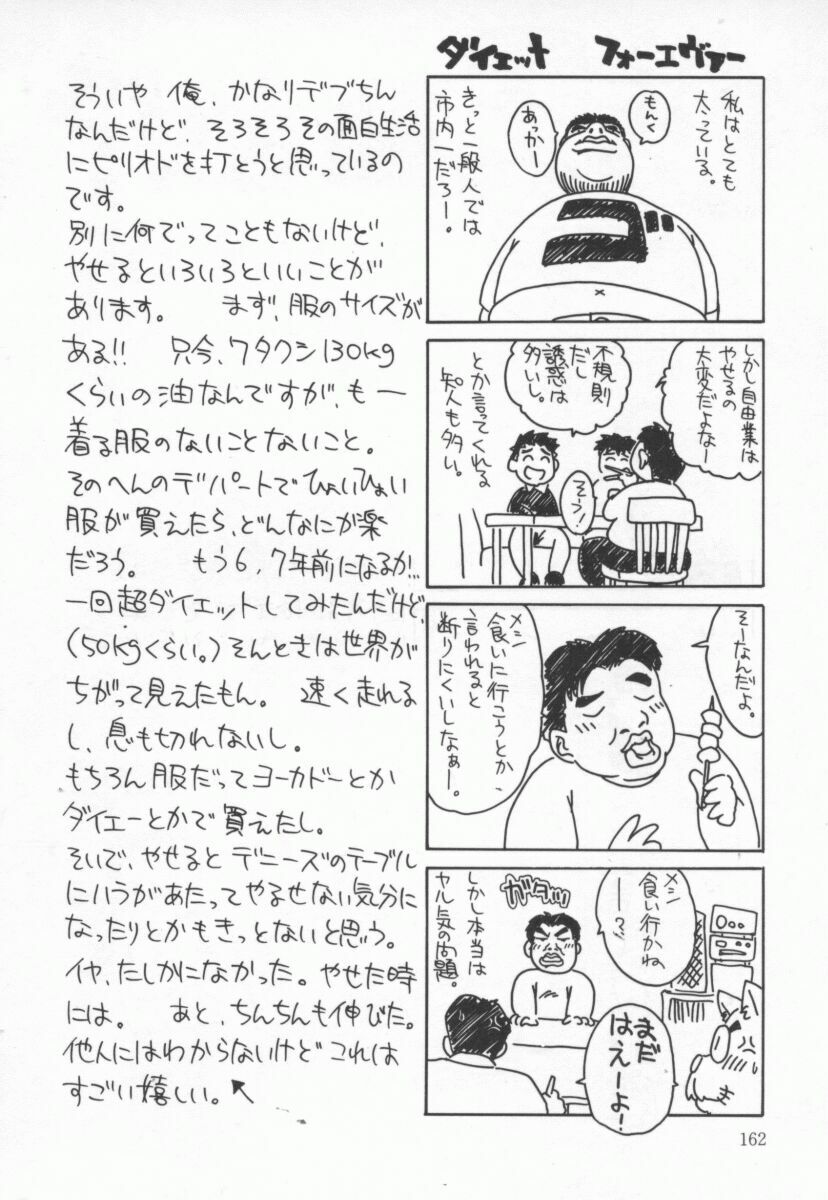 ダイエット フォーエヴァー
私はとても
太っている。
もんく
あっかー
きっと一般人では
市内一だろー。
しかし自由業は
やせるの
大変だよなー
不規則
だし
誘惑は
多いし。
そーう!
とか言ってくれる
知人も多い。
そーなんだよ。
メシ
食いに行こうとか、
言われると
断りにくいしなぁー。
メシ
食い行かね
ー?
ガタッ
しかし本当は
ヤル気の問題。
まだ
はえーよ!
そういや 俺、かなりデブちん
なんだけど、そろそろその面白生活
にピリオドを打とうと思っているの
です。
別に何でってこともないけど、
やせるといろいろといいことが
あります。 まず、服のサイズが
ある!! 只今、ワタクシ130kg
くらいの油なんですが、も一
着る服のないことないこと。
そのへんのデパートでひょいひょい
服が買えたら、どんなにか楽
だろう。 もう6,7年前になるか…
一回超ダイエットしてみたんだけど、
(50kgくらい。)そんときは世界が
ちがって見えたもん。 速く走れる
し、息も切れないし。
もちろん服だってヨーカドーとか
ダイエーとかで買えたし。
そいで、やせるとデニーズのテーブル
にハラがあたってやるせない気分に
なったりとかもきっとないと思う。
イヤ、たしかになかった。やせた時
には。 あと、ちんちんも伸びた。
他人にはわからないけどこれは
すごい嬉しい。↖
162